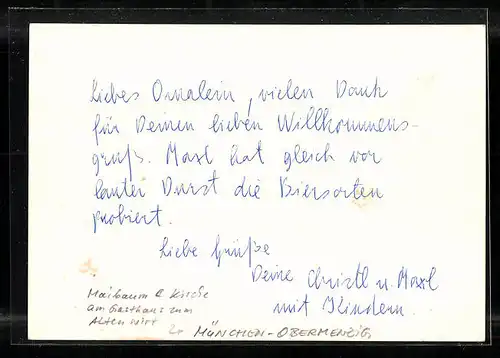 Liebes Omalein, vielen Dank
für Deinen lieben Willkommens-
gruß. Maxl hat gleich vor
lauter Durst die Biersorten
probiert.
Liebe Grüße
Deine Christl u. Maxl
mit Kindern.
Maibaum & Kirche
am Gasthaus zum
Alten Wirt
MÜNCHEN-OBERMENZIG